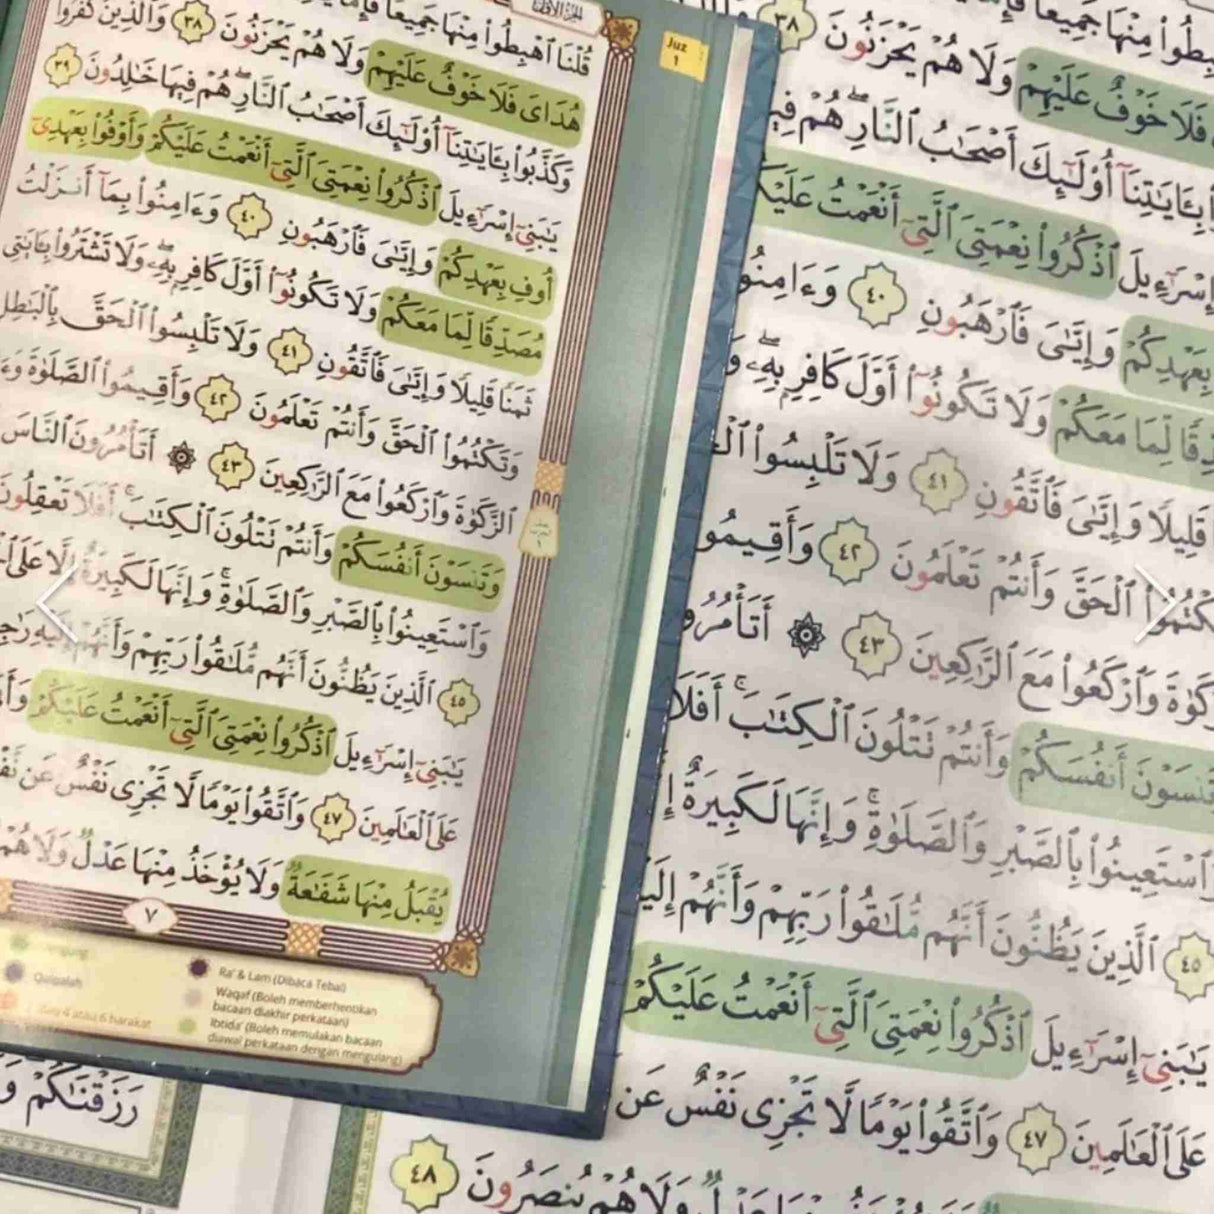 الجزء الأول
Juz 1
قُلْنَا ٱهْبِطُوا۟ مِنْهَا جَمِيعًا
هُدَاىَ فَلَا خَوْفٌ عَلَيْهِمْ وَلَا هُمْ يَحْزَنُونَ ٣٨ وَٱلَّذِينَ كَفَرُوا۟
وَكَذَّبُوا۟ بِـَٔايَـٰتِنَآ أُو۟لَـٰٓئِكَ أَصْحَـٰبُ ٱلنَّارِ ۖ هُمْ فِيهَا خَـٰلِدُونَ ٣٩
يَـٰبَنِىٓ إِسْرَٰٓءِيلَ ٱذْكُرُوا۟ نِعْمَتِىَ ٱلَّتِىٓ أَنْعَمْتُ عَلَيْكُمْ وَأَوْفُوا۟ بِعَهْدِىٓ
أُوفِ بِعَهْدِكُمْ وَإِيَّـٰىَ فَٱرْهَبُونِ ٤٠ وَءَامِنُوا۟ بِمَآ أَنزَلْتُ
مُصَدِّقًا لِّمَا مَعَكُمْ وَلَا تَكُونُوٓا۟ أَوَّلَ كَافِرٍۭ بِهِۦ ۖ وَلَا تَشْتَرُوا۟ بِـَٔايَـٰتِى
ثَمَنًا قَلِيلًا وَإِيَّـٰىَ فَٱتَّقُونِ ٤١ وَلَا تَلْبِسُوا۟ ٱلْحَقَّ بِٱلْبَـٰطِلِ
وَتَكْتُمُوا۟ ٱلْحَقَّ وَأَنتُمْ تَعْلَمُونَ ٤٢ وَأَقِيمُوا۟ ٱلصَّلَوٰةَ
ٱلزَّكَوٰةَ وَٱرْكَعُوا۟ مَعَ ٱلرَّٰكِعِينَ ٤٣ ۞ أَتَأْمُرُونَ ٱلنَّاسَ
وَتَنسَوْنَ أَنفُسَكُمْ وَأَنتُمْ تَتْلُونَ ٱلْكِتَـٰبَ ۚ أَفَلَا تَعْقِلُونَ
وَٱسْتَعِينُوا۟ بِٱلصَّبْرِ وَٱلصَّلَوٰةِ ۚ وَإِنَّهَا لَكَبِيرَةٌ إِلَّا عَلَى
٤٥ ٱلَّذِينَ يَظُنُّونَ أَنَّهُم مُّلَـٰقُوا۟ رَبِّهِمْ وَأَنَّهُمْ إِلَيْهِ
يَـٰبَنِىٓ إِسْرَٰٓءِيلَ ٱذْكُرُوا۟ نِعْمَتِىَ ٱلَّتِىٓ أَنْعَمْتُ عَلَيْكُمْ
عَلَى ٱلْعَـٰلَمِينَ ٤٧ وَٱتَّقُوا۟ يَوْمًا لَّا تَجْزِى نَفْسٌ عَن
يُقْبَلُ مِنْهَا شَفَـٰعَةٌ وَلَا يُؤْخَذُ مِنْهَا عَدْلٌ وَلَا هُمْ
٧
Ra' & Lam (Dibaca Tebal)
Qalqalah
Waqaf (Boleh memberhentikan
bacaan diakhir perkataan)
4 atau 6 harakat
Ibtida' (Boleh memulakan bacaan
diawal perkataan dengan mengulang)
رَزَقْنَـٰكُمْ
مِنْهَا جَمِيعًا
فَلَا خَوْفٌ عَلَيْهِمْ وَلَا هُمْ يَحْزَنُونَ ٣٨
بِـَٔايَـٰتِنَآ أُو۟لَـٰٓئِكَ أَصْحَـٰبُ ٱلنَّارِ ۖ هُمْ
إِسْرَٰٓءِيلَ ٱذْكُرُوا۟ نِعْمَتِىَ ٱلَّتِىٓ أَنْعَمْتُ
بِعَهْدِكُمْ وَإِيَّـٰىَ فَٱرْهَبُونِ ٤٠
لِّمَا مَعَكُمْ وَلَا تَكُونُوٓا۟ أَوَّلَ كَافِرٍۭ بِهِۦ ۖ
قَلِيلًا وَإِيَّـٰىَ فَٱتَّقُونِ ٤١ وَلَا تَلْبِسُوا۟
ٱلْحَقَّ وَأَنتُمْ تَعْلَمُونَ ٤٢
وَٱرْكَعُوا۟ مَعَ ٱلرَّٰكِعِينَ ٤٣ ۞
أَنفُسَكُمْ وَأَنتُمْ تَتْلُونَ ٱلْكِتَـٰبَ ۚ أَفَلَا
بِٱلصَّبْرِ وَٱلصَّلَوٰةِ ۚ وَإِنَّهَا لَكَبِيرَةٌ
٤٥ ٱلَّذِينَ يَظُنُّونَ أَنَّهُم مُّلَـٰقُوا۟ رَبِّهِمْ وَأَنَّهُمْ
يَـٰبَنِىٓ إِسْرَٰٓءِيلَ ٱذْكُرُوا۟ نِعْمَتِىَ ٱلَّتِىٓ أَنْعَمْتُ عَلَيْكُمْ
عَلَى ٱلْعَـٰلَمِينَ ٤٧ وَٱتَّقُوا۟ يَوْمًا لَّا تَجْزِى نَفْسٌ عَن
وَلَا هُمْ يُنصَرُونَ ٤٨